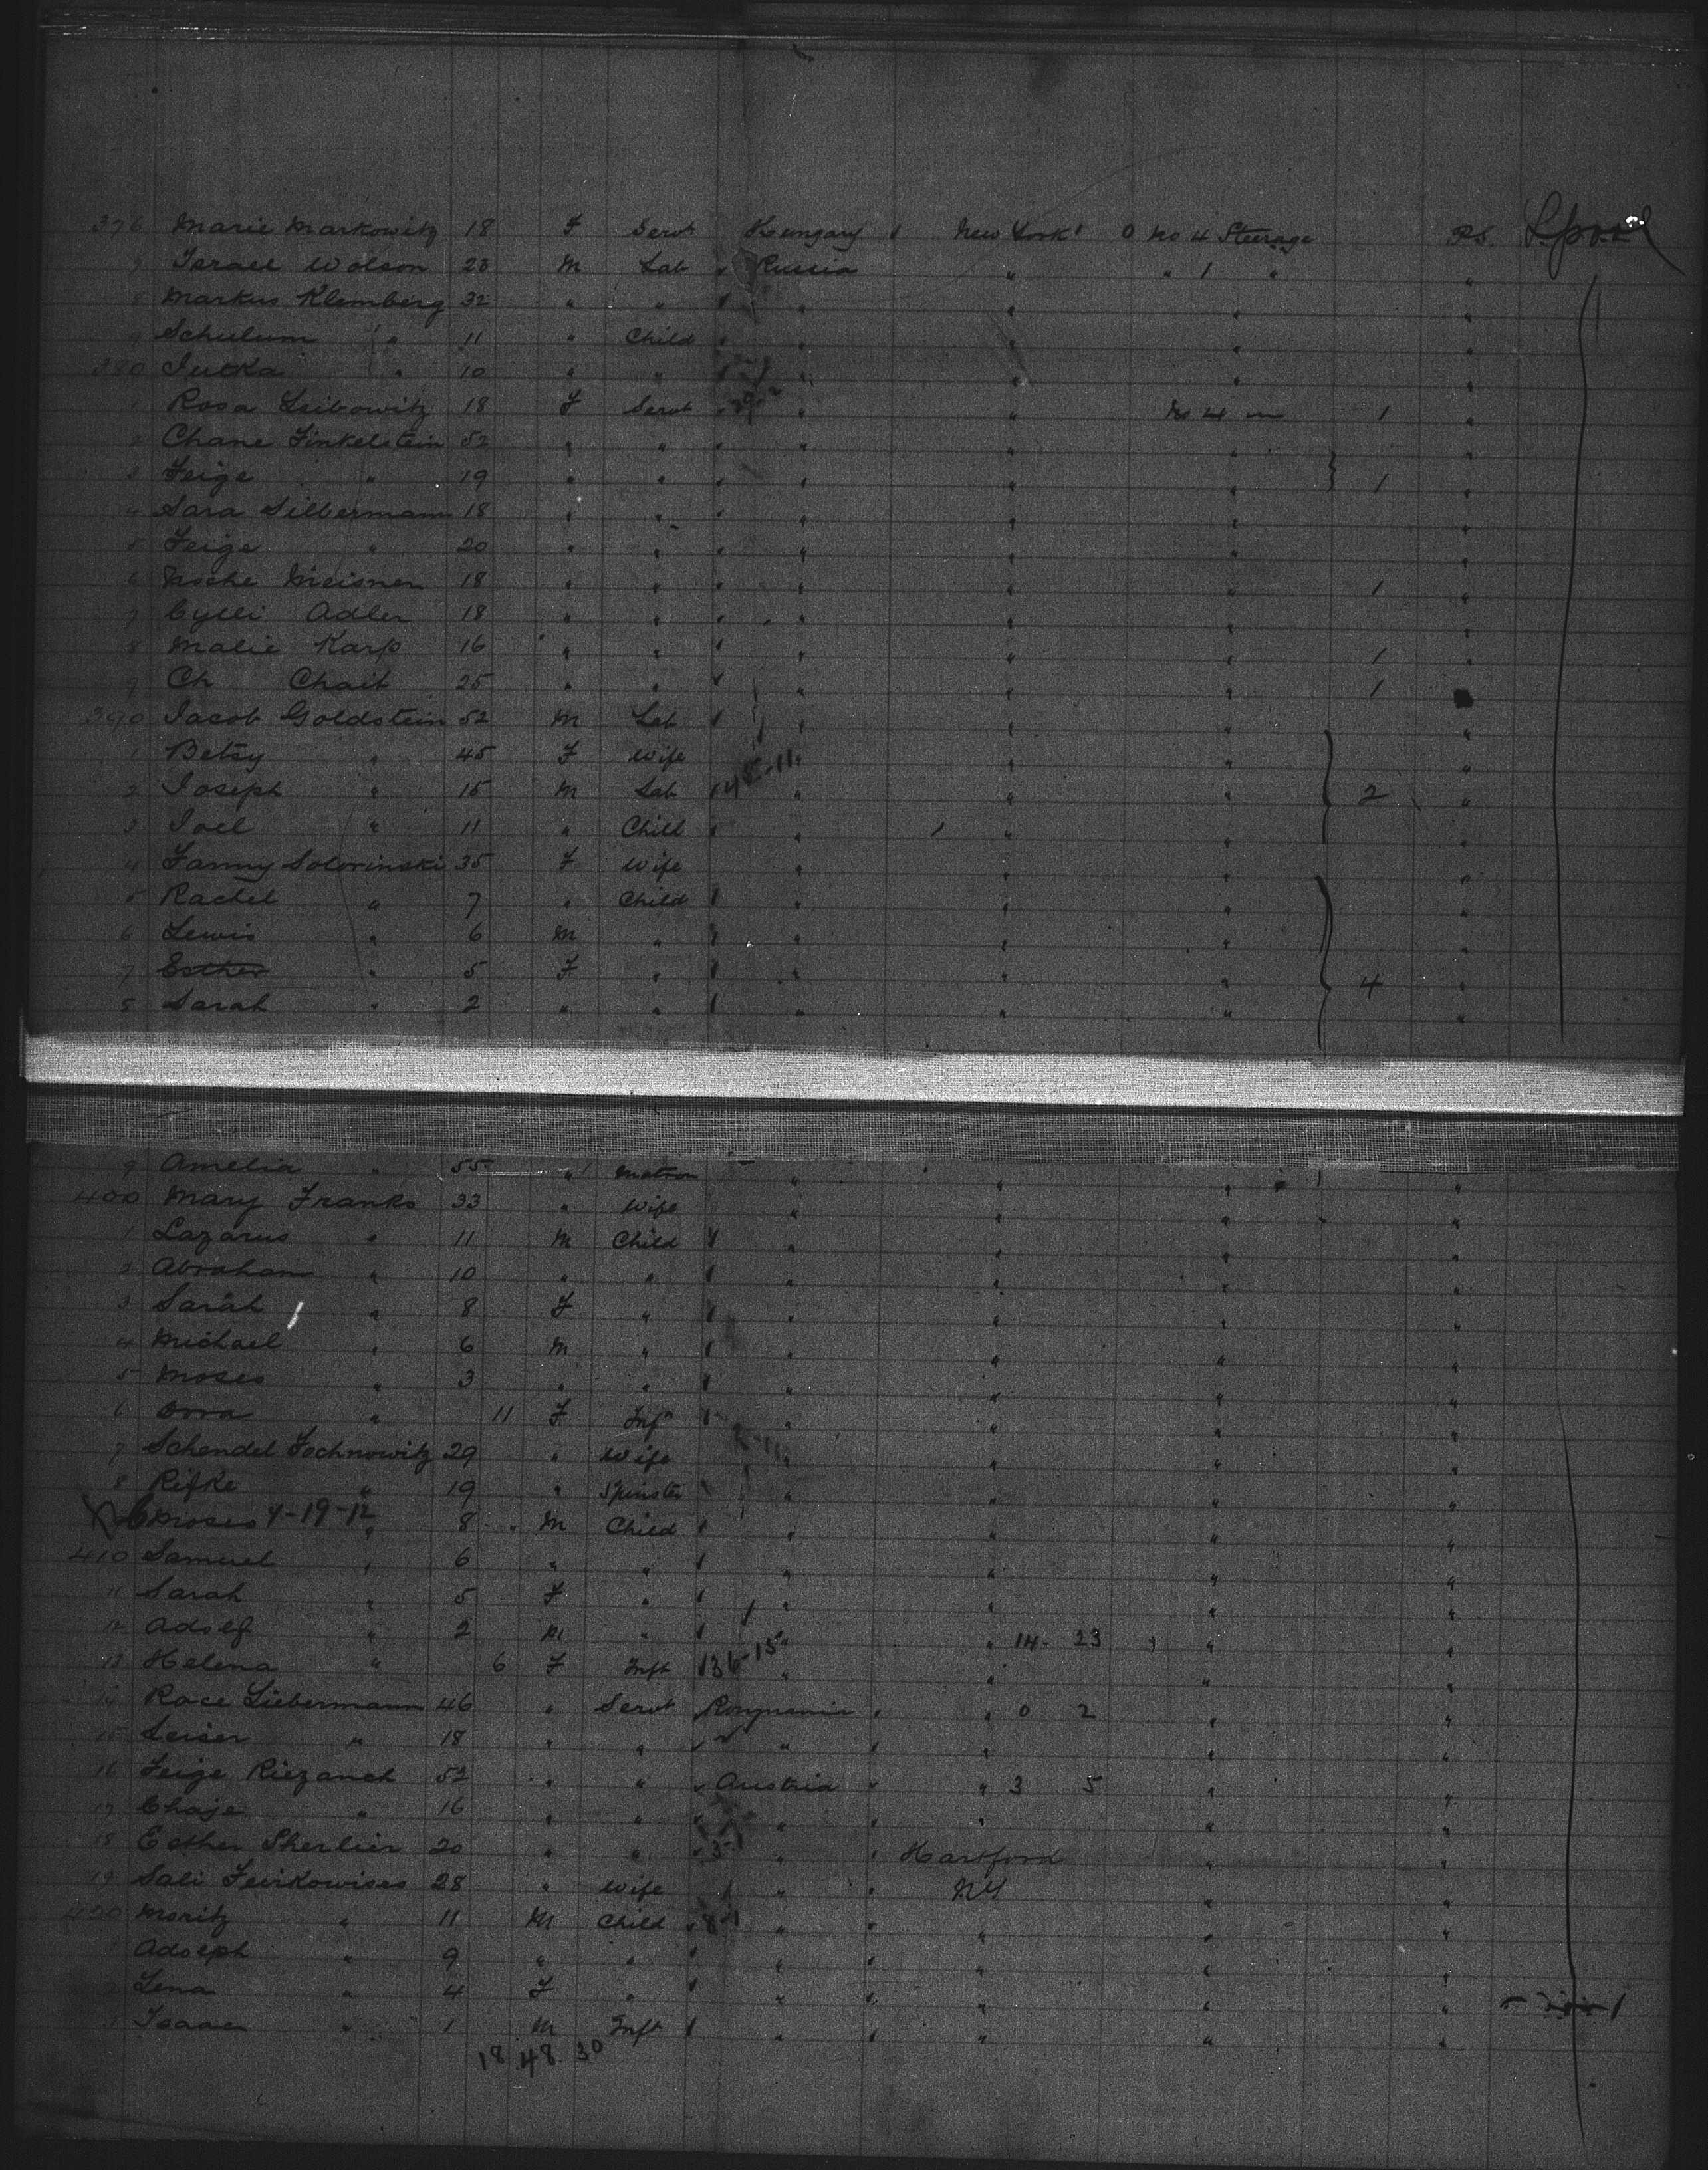 376 Marie Markowitz 18 F Servt Hungary New York 0 No 4 Steerage P.S. L.pool
7 Israel Wolson 23 M Lab Russia " " 1 " "
8 Markus Klemberg 32 " " " " " "
9 Schulum " 11 " Child " " " "
380 Jutka " 10 " " " " " "
1 Rosa Leibowitz 18 F Servt " " No 4 " 1 "
2 Chane Finkelstein 52 " " " " " "
3 Feige " 19 " " " " " 1 "
4 Sara Silbermann 18 " " " " " "
5 Feige " 20 " " " " " "
6 Meisner 18 " " " " " 1 "
7 Cylli Adler 18 " " " " " "
8 Malie Karp 16 " " " " " 1 "
9 Ch Chait 25 " " " " " 1
390 Jacob Goldstein 52 M Lab " " " "
1 Betsy " 45 F Wife " " " "
2 Joseph " 15 M Lab " " " 2 "
3 Joel " 11 " Child " " " "
4 Fanny Solorinski 35 F Wife " " " "
5 Rachel " 7 " Child " " " "
6 Lewis " 6 M " " " " "
7 Esther " 5 F " " " " 4 "
8 Sarah " 2 " " " " " "
9 Amelia " 55 " Matron " " " "
400 Mary Franks 33 " Wife " " " "
1 Lazarus " 11 M Child " " " "
2 Abraham " 10 " " " " " "
3 Sarah " 8 F " " " " "
4 Michael " 6 M " " " " "
5 Moses " 3 " " " " " "
6 " 11 F Inft " " " "
7 Schendel Fochnowitz 29 " Wife " " " "
8 Rifke " 19 " Spinster " " " "
Moses 4-19-12 " 8 M Child " " " "
410 Samuel " 6 " " " " " "
11 Sarah " 5 F " " " " "
12 Adolf " 2 M " " " 14 - 23 " "
13 Helena " 6 F Inft " " " "
14 Race Liebermann 46 " Servt Roumania " " 0 2 " "
15 Leiser " 18 " " " " " " "
16 Feige Riezanch 52 " " Austria " " 3 5 " "
17 Chaje " 16 " " " " " " "
18 Esther Sherlier 20 " " " " Hartford " "
19 Sali Feirkowises 28 " Wife " " NY " "
420 Moritz " 11 M Child " " " " "
1 Adolph " 9 " " " " " " "
2 Lena " 4 F " " " " " "
3 Isaac " 1 M Inft " " " " "
18 48 30